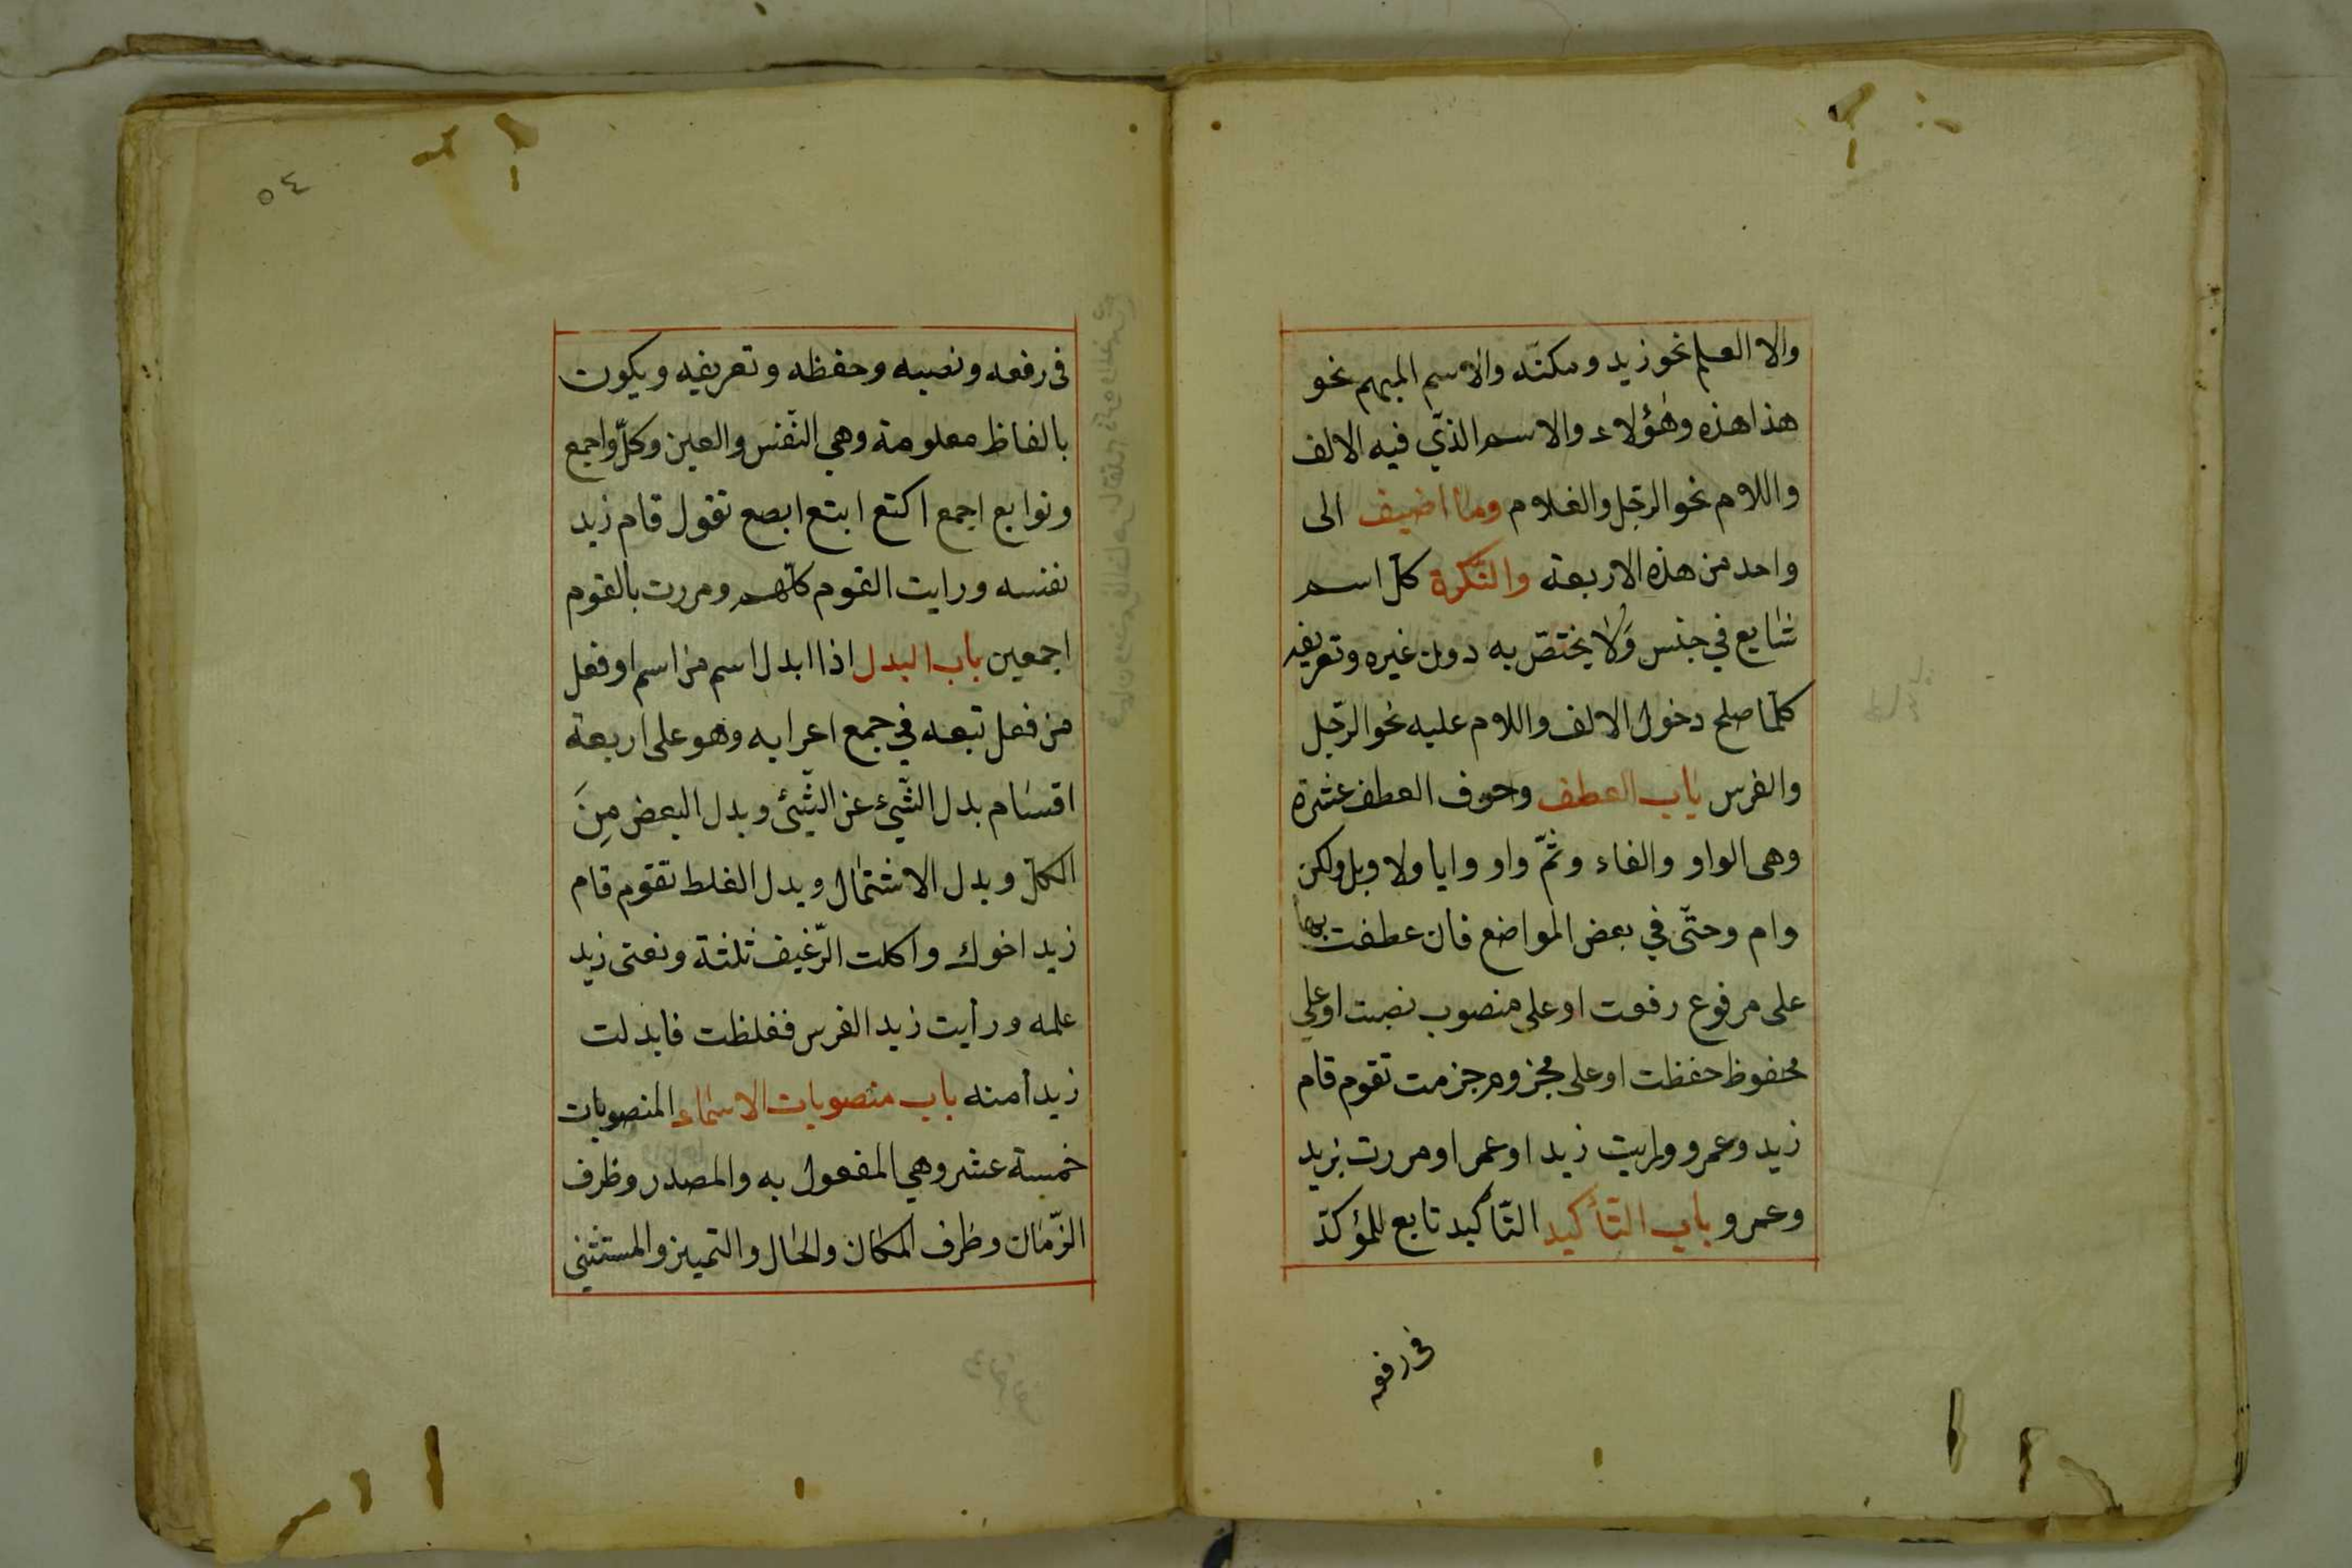 والا العلم نحو زيد ومكتّه والاسم المبهم نحو
هذا هذه وهٰؤلاء والاسم الذّي فيه الالف
واللام نحو الرّجل والغلام وما اضيف الى
واحد من هذه الاربعة والنّكرة كلّ اسم
شايع في جنس وَلا يختصّ به دون غيره وتعريفه
كلّما صلح دخول الالف واللام عليه نحو الرّجل
والفرس باب العطف وحوف العطف عشرة
وهى الواو والفاء وثمّ واو وايا ولا وبل ولكن
وام وحتّى في بعض المواضع فان عطفت بها
على مرفوع رفعت او على منصوب نصبت او على
محفوظ حفظت او على مجزوم جزمت تقوم قام
زيد وعمرو ورايت زيد اوعمرا ومررت بزيد
وعمرو باب التّأكيد التّأكيد تابع للمؤكدّ
فى رفعه
٥٤
فى رفعه ونصبه وحفظه وتعريفه ويكون
بالفاظ معلومة وهي النّفس والعين وكلّ واجمع
وتوابع اجمع اكتع ابتع ابصع تقول قام زيد
نفسه ورايت القوم كلّهم ومررت بالقوم
اجمعين باب البدل اذا ابدل اسم من اسم او فعل
من فعل تبعه في جمع اعرابه وهو على اربعة
اقسام بدل الشّيء عن الشّيئ وبدل البعض مِنَ
الكلّ وبدل الاشتمال وبدل الغلط تقوم قام
زيد اخوك واكلت الرّغيف ثلثة ونعتى زيد
علمه ورأيت زيد الفرس فغلظت فابدلت
زيد أمنه باب منصوبات الاسماء المنصوبات
خمسة عشر وهي المفعول به والمصدر وظرف
الزّمان وظرف المكان والحال والتمييز والمستثنى